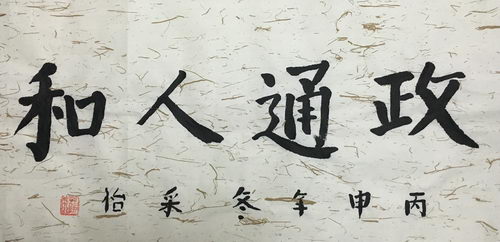 政通人和
丙申年冬采怡